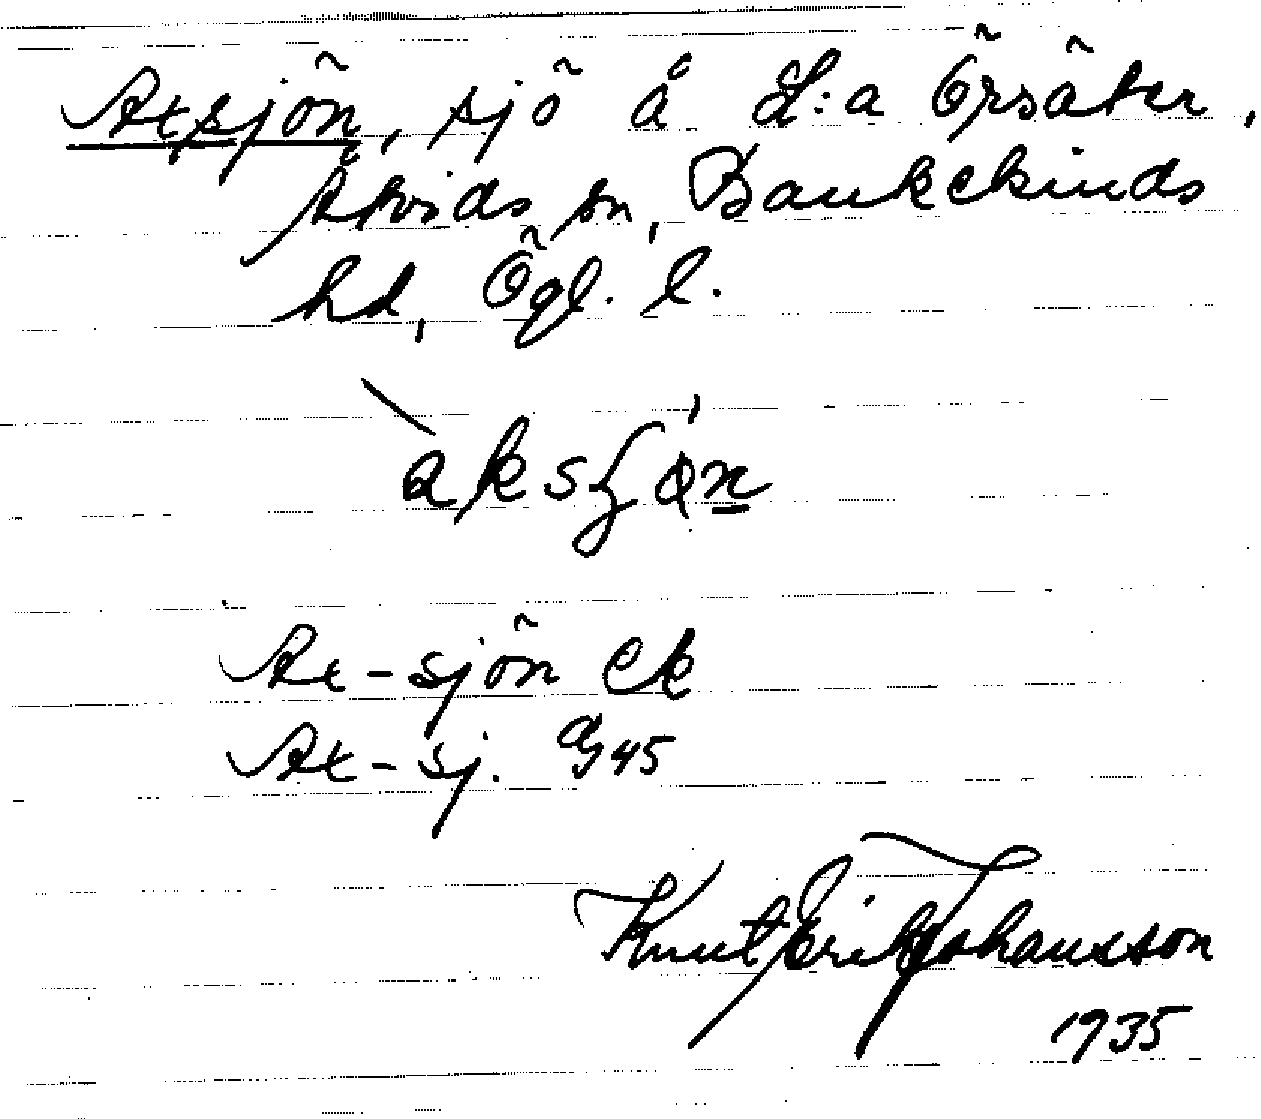 Axsjön, sjö å d:a Örsäter,
Åtvids sn, Bankekinds
hd, Ögl. l.
Ax-sjön ek
Ax-sj. 45
Knut Erik Johansson
1935